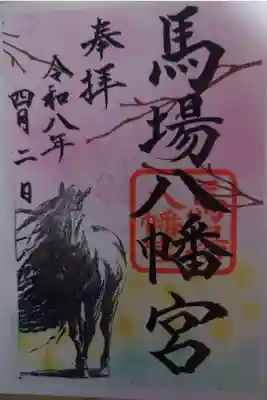 馬場八幡宮
奉拝
令和八年
四月二日